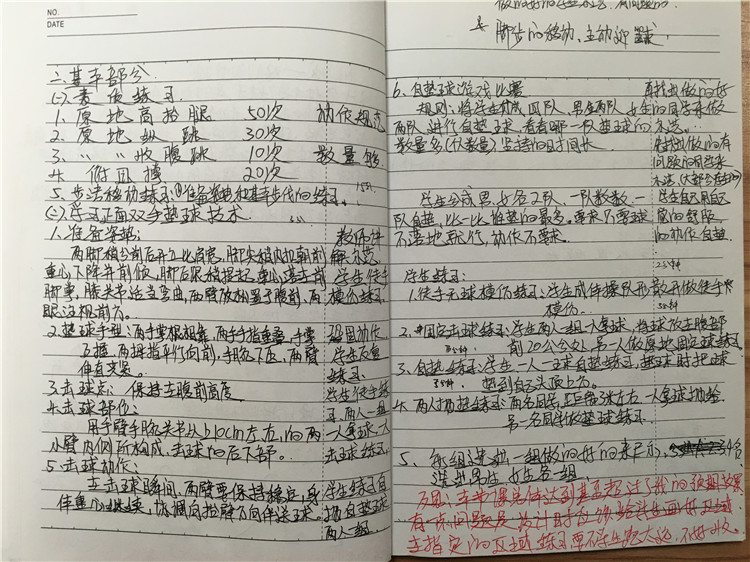 NO.
DATE
二.基本部分
(一).素质练习
1. 原地高抬腿 50次 动作规范
2. 原地纵跳 30次
3. 〃 〃 收腹跳 10次 数量够
4. 俯卧撑 20次
5. 步法移动练习:①准备姿势和基本步伐的练习.
(二).学习正面双手垫球技术.
1.准备姿势: 教师讲
两脚稍分前后开立比肩宽,脚尖稍内扣朝前 解示范
重心下降并前倾,脚后跟稍提起,重心落在前 学生徒手
脚掌,膝关节适当弯曲,两臂放松置于腹前,两 模仿练习
眼注视前方.
2.垫球手型:两手掌根相靠,两手手指重叠,手掌 巩固动作
互握,两拇指平行向前,手腕下压,两臂
伸直夹紧. 练习
3.击球点: 保持在腹前高度 学生徒手练
4.击球部位: 习,两人一组
用手臂手腕关节以上10cm左右,的两 一人拿球一人
小臂内侧所构成,击球的后下部. 击球练习
5.击球动作:
在击球瞬间,两臂要保持稳定,身 学生练习自
体重心继续 抬臂 向伴送球. 抛自垫球
两人一组
做的好的
脚步的移动、主动迎球
6. 自垫球游戏比赛 再找出做的好
规则:将学生分成四队,男生两队,女生 的同学来做
两队,进行自垫球,看看哪一队垫球的
数量多(以数量)坚持的时间长. 找出做的有
问题的同学来
学生分成男、女各2队,一队数数,一 学生自己用自己
队自垫,比一比谁垫的最多.要求不要球 觉的舒服
不落地就行,动作不要求. 的动作自垫.
25分钟
学生练习:
1. 徒手无球模仿练习:学生成体操队形散开做徒手
模仿.
2. 固定击球练习:学生两人一组,一人拿球,将球放在腹部
前20公分处,另一人做原地固定球练习
3. 自垫练习:学生一人一球自垫练习,垫球时把球
垫到自己头顶上方.
4. 两人抛垫练习:两名同学,正距3米左右,一人拿球抛给
另一名同学做垫球练习.
5、每组选出一组做的好的来展示,
选出男生,女生各一组
反思:本节课总体达到甚至超过了我的预期效果,
有一点问题是设计时应该给学生画好区域,
在指定的区域练习,要不学生跑太远,不好收.